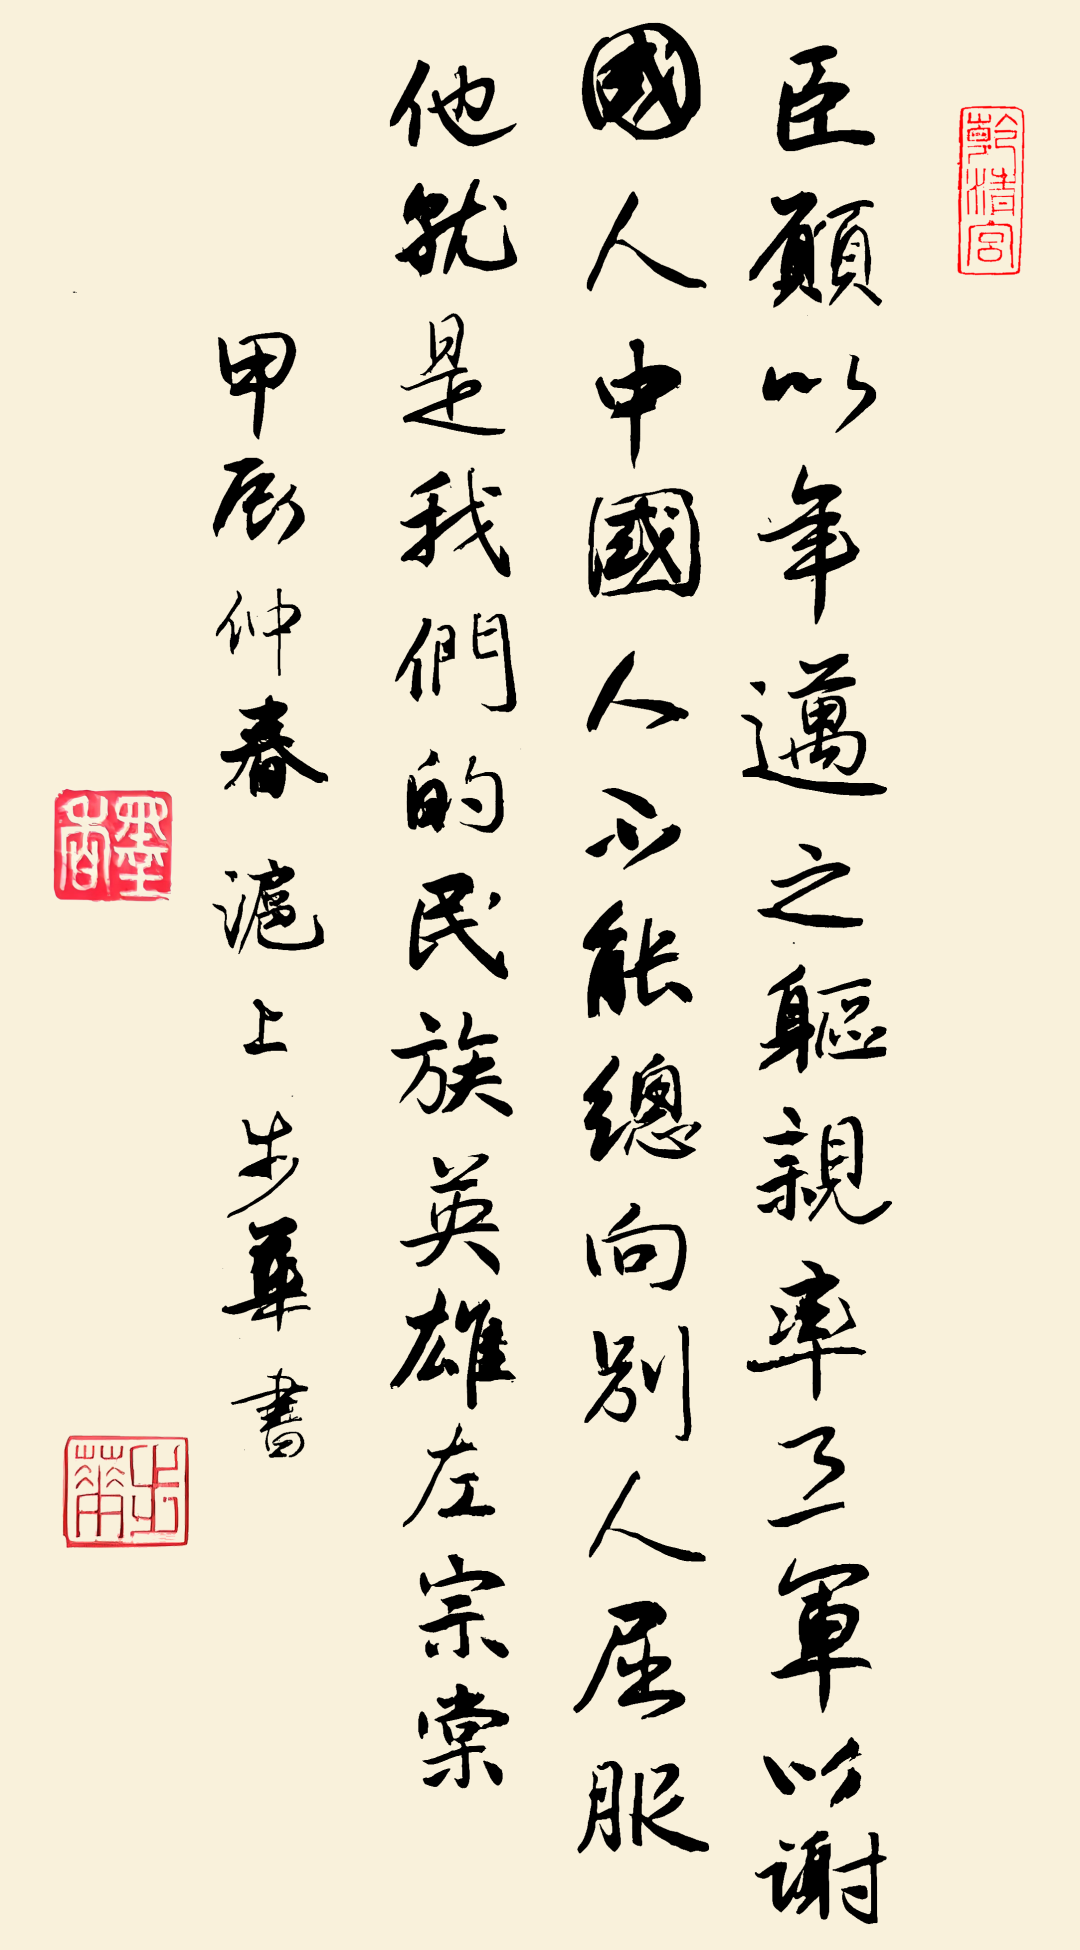 乾清宮
臣願以年邁之軀親率三軍以謝
國人中國人不能總向別人屈服
他就是我們的民族英雄左宗棠
甲辰仲春滬上步華書
墨香
步華